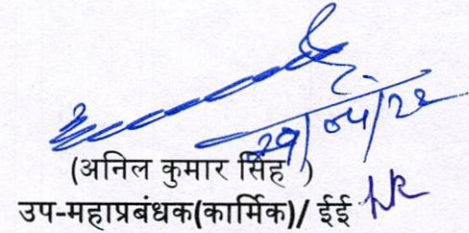 29/04/22
(अनिल कुमार सिंह )
उप-महाप्रबंधक(कार्मिक)/ ईई